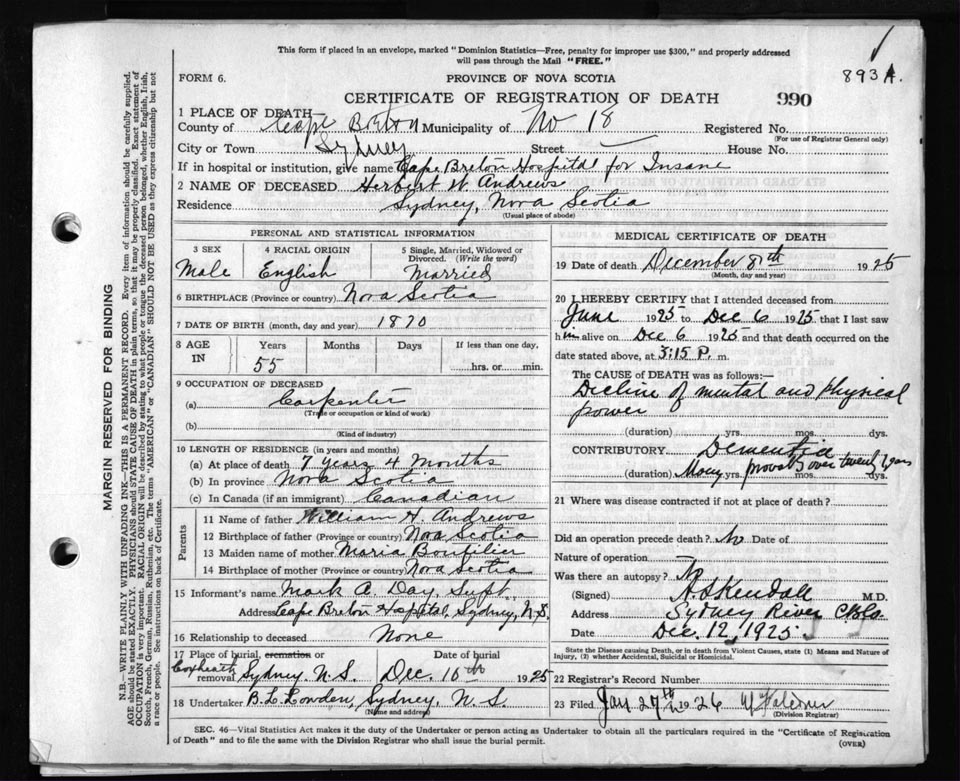 This form if placed in an envelope, marked "Dominion Statistics—Free, penalty for improper use $300," and properly addressed
will pass through the Mail "FREE."
893 A.
FORM 6.
PROVINCE OF NOVA SCOTIA
CERTIFICATE OF REGISTRATION OF DEATH
990
1 PLACE OF DEATH
County of Cape Breton Municipality of No 18 Registered No.
(For use of Registrar General only)
City or Town Sydney Street — House No.
If in hospital or institution, give name Cape Breton Hospital for Insane
2 NAME OF DECEASED Herbert W. Andrews
Residence Sydney, Nova Scotia
(Usual place of abode)
PERSONAL AND STATISTICAL INFORMATION
3 SEX 4 RACIAL ORIGIN 5 Single, Married, Widowed or
Divorced. (Write the word)
Male English Married
6 BIRTHPLACE (Province or country) Nova Scotia
7 DATE OF BIRTH (month, day and year) 1870
8 AGE IN Years Months Days If less than one day,
55 hrs. or min.
9 OCCUPATION OF DECEASED
(a) Carpenter
(Trade or occupation or kind of work)
(b)
(Kind of industry)
10 LENGTH OF RESIDENCE (in years and months)
(a) At place of death 7 years 4 months
(b) In province Nova Scotia
(c) In Canada (if an immigrant) Canadian
Parents
11 Name of father William H. Andrews
12 Birthplace of father (Province or country) Nova Scotia
13 Maiden name of mother Maria Bonfilier
14 Birthplace of mother Nova Scotia
15 Informant's name Mark A. Day, Supt.
Address Cape Breton Hospital, Sydney, N.S.
16 Relationship to deceased None
17 Place of burial, cremation or Date of burial
Coxheath removal Sydney N.S. Dec. 10th 1925
18 Undertaker B. L. Lowden, Sydney N.S.
(Name and address)
MEDICAL CERTIFICATE OF DEATH
19 Date of death December 8th 1925
(Month, day and year)
20 I HEREBY CERTIFY that I attended deceased from
June 1925 to Dec 6 1925 that I last saw
him alive on Dec 6 1925 and that death occurred on the
date stated above, at 3:15 P. m.
The CAUSE OF DEATH was as follows:—
Decline of mental and physical
power
(duration) yrs. mos. dys.
CONTRIBUTORY Dementia
(duration) Many yrs. probably over twenty years mos. dys.
21 Where was disease contracted if not at place of death?
Did an operation precede death? No Date of
Nature of operation
Was there an autopsy? No
(Signed) A S Kendall M.D.
Address Sydney River C.B. Co.
Date Dec. 12, 1925
State the Disease causing Death, or in death from Violent Causes, state (1) Means and Nature of
Injury, (2) whether Accidental, Suicidal or Homicidal.
22 Registrar's Record Number
23 Filed Jan 27th 1926
(Division Registrar)
SEC. 46—Vital Statistics Act makes it the duty of the Undertaker or person acting as Undertaker to obtain all the particulars required in the "Certificate of Registration
of Death" and to file the same with the Division Registrar who shall issue the burial permit.
(OVER)
MARGIN RESERVED FOR BINDING
N.B.—WRITE PLAINLY WITH UNFADING INK—THIS IS A PERMANENT RECORD. Every item of information should be carefully supplied.
AGE should be stated EXACTLY. PHYSICIANS should STATE CAUSE OF DEATH in plain terms, so that it may be properly classified. Exact statement of
OCCUPATION is very important. RACIAL ORIGIN will be described by stating to what people or tongue the deceased person belonged, whether English, Irish,
Scotch, French, German, Russian, Ruthenian, etc. The terms "AMERICAN" or "CANADIAN" SHOULD NOT BE USED as they express citizenship but not
a race or people. See instructions on back of Certificate.